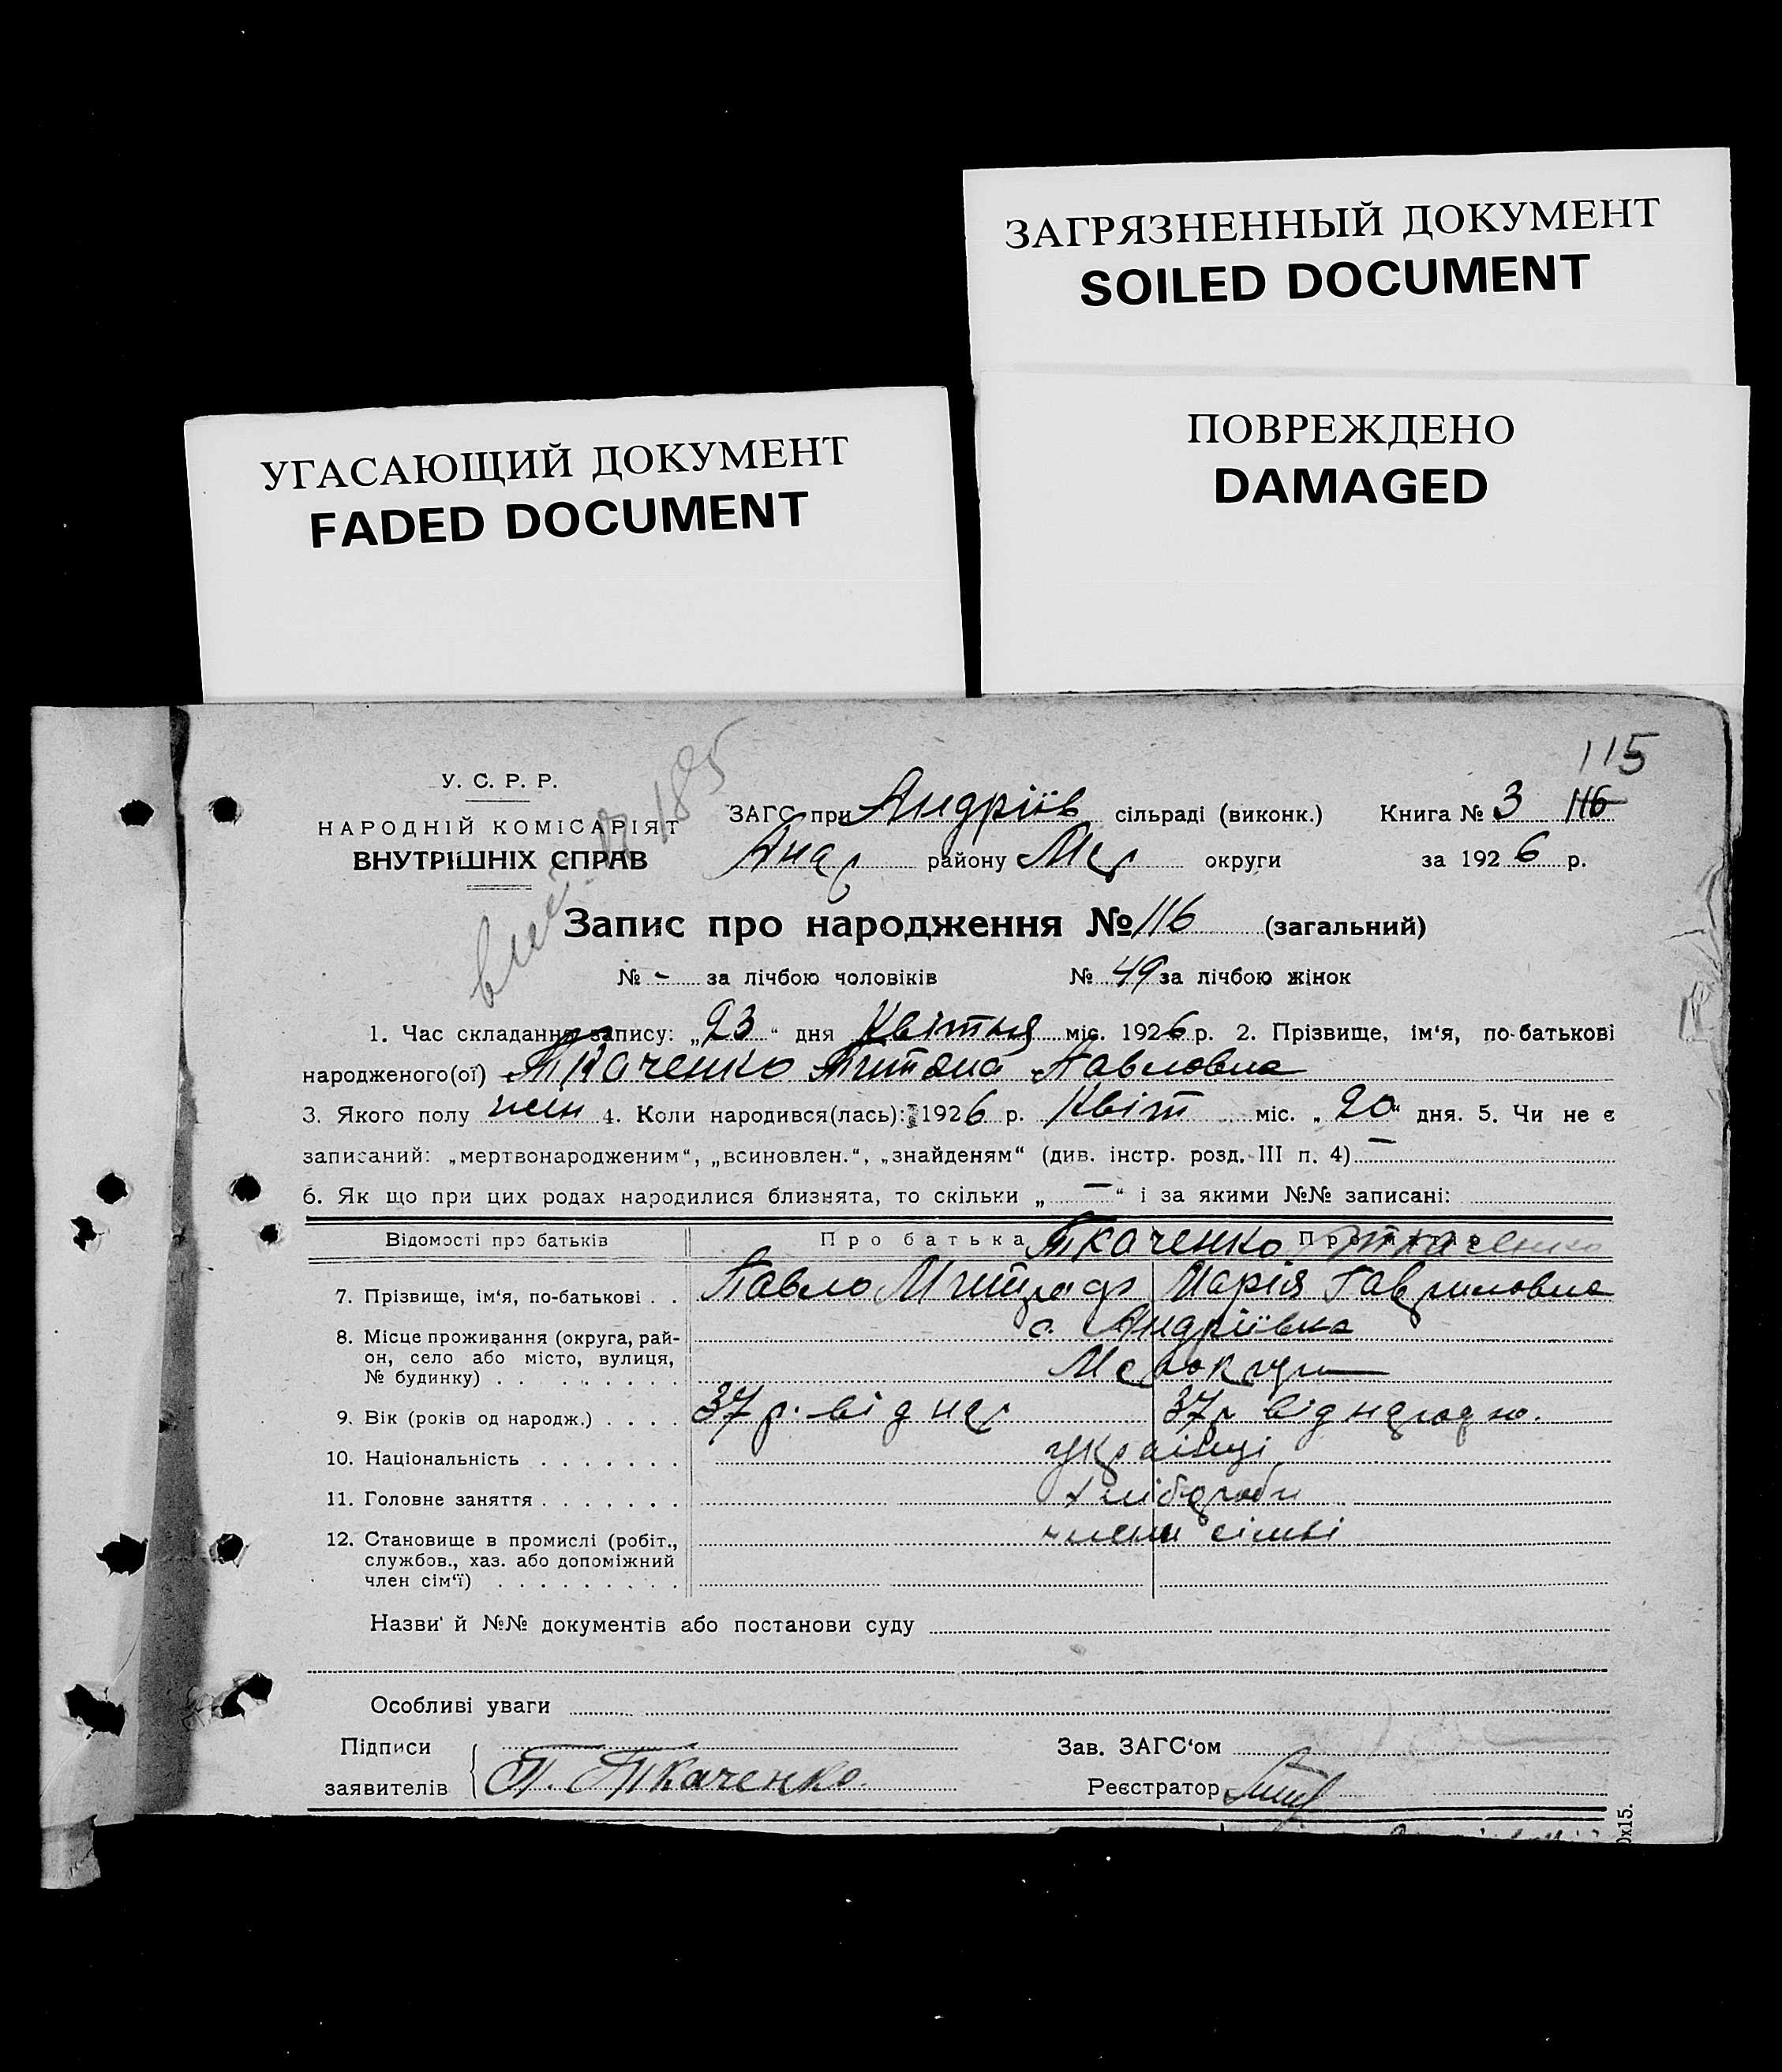 ЗАГРЯЗНЕННЫЙ ДОКУМЕНТ
SOILED DOCUMENT
УГАСАЮЩИЙ ДОКУМЕНТ
FADED DOCUMENT
ПОВРЕЖДЕНО
DAMAGED
115
У. С. Р. Р.
НАРОДНІЙ КОМІСАРІЯТ
ВНУТРІШНІХ СПРАВ
185
ЗАГС при Андріїв сільраді (виконк.) Книга № 3 116
Анд району Ме округи за 1926 р.
Запис про народження № 116 (загальний)
№ - за лічбою чоловіків № 49 за лічбою жінок
1. Час складання запису: „23“ дня Квітня міс. 1926 р. 2. Прізвище, ім‘я, по-батькові
народженого(ої) Ткаченко Павловна
3. Якого полу жен 4. Коли народився(лась): 1926 р. Квіт міс. „20“ дня. 5. Чи не є
записаний: „мертвонародженим“, „всиновлен.“, „знайденям“ (див. інстр. розд. III п. 4) —
6. Як що при цих родах народилися близнята, то скільки „—“ і за якими №№ записані:
Відомості про батьків Про батька Ткаченко Про матір Ткаченко
7. Прізвище, ім‘я, по-батькові . . Павло Марія Гавриловна
8. Місце проживання (округа, рай- с. Андріївка
он, село або місто, вулиця,
№ будинку) . . . . . . . . Мел округи
9. Вік (років од народж.) . . . . 37 р. від на 37 р від народж.
10. Національність . . . . . . . українці
11. Головне заняття . . . . . . . хлібороби
12. Становище в промислі (робіт., члени сімьі
службов., хаз. або допоміжний
член сім‘ї) . . . . . . . . .
Назви й №№ документів або постанови суду
Особливі уваги
Підписи Зав. ЗАГС‘ом
заявителів П. Ткаченко Реєстратор
0х15.